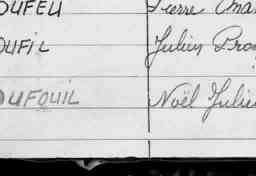 OUFEU Pierre
OUFIL Julien
OUFOUIL Noël Julie